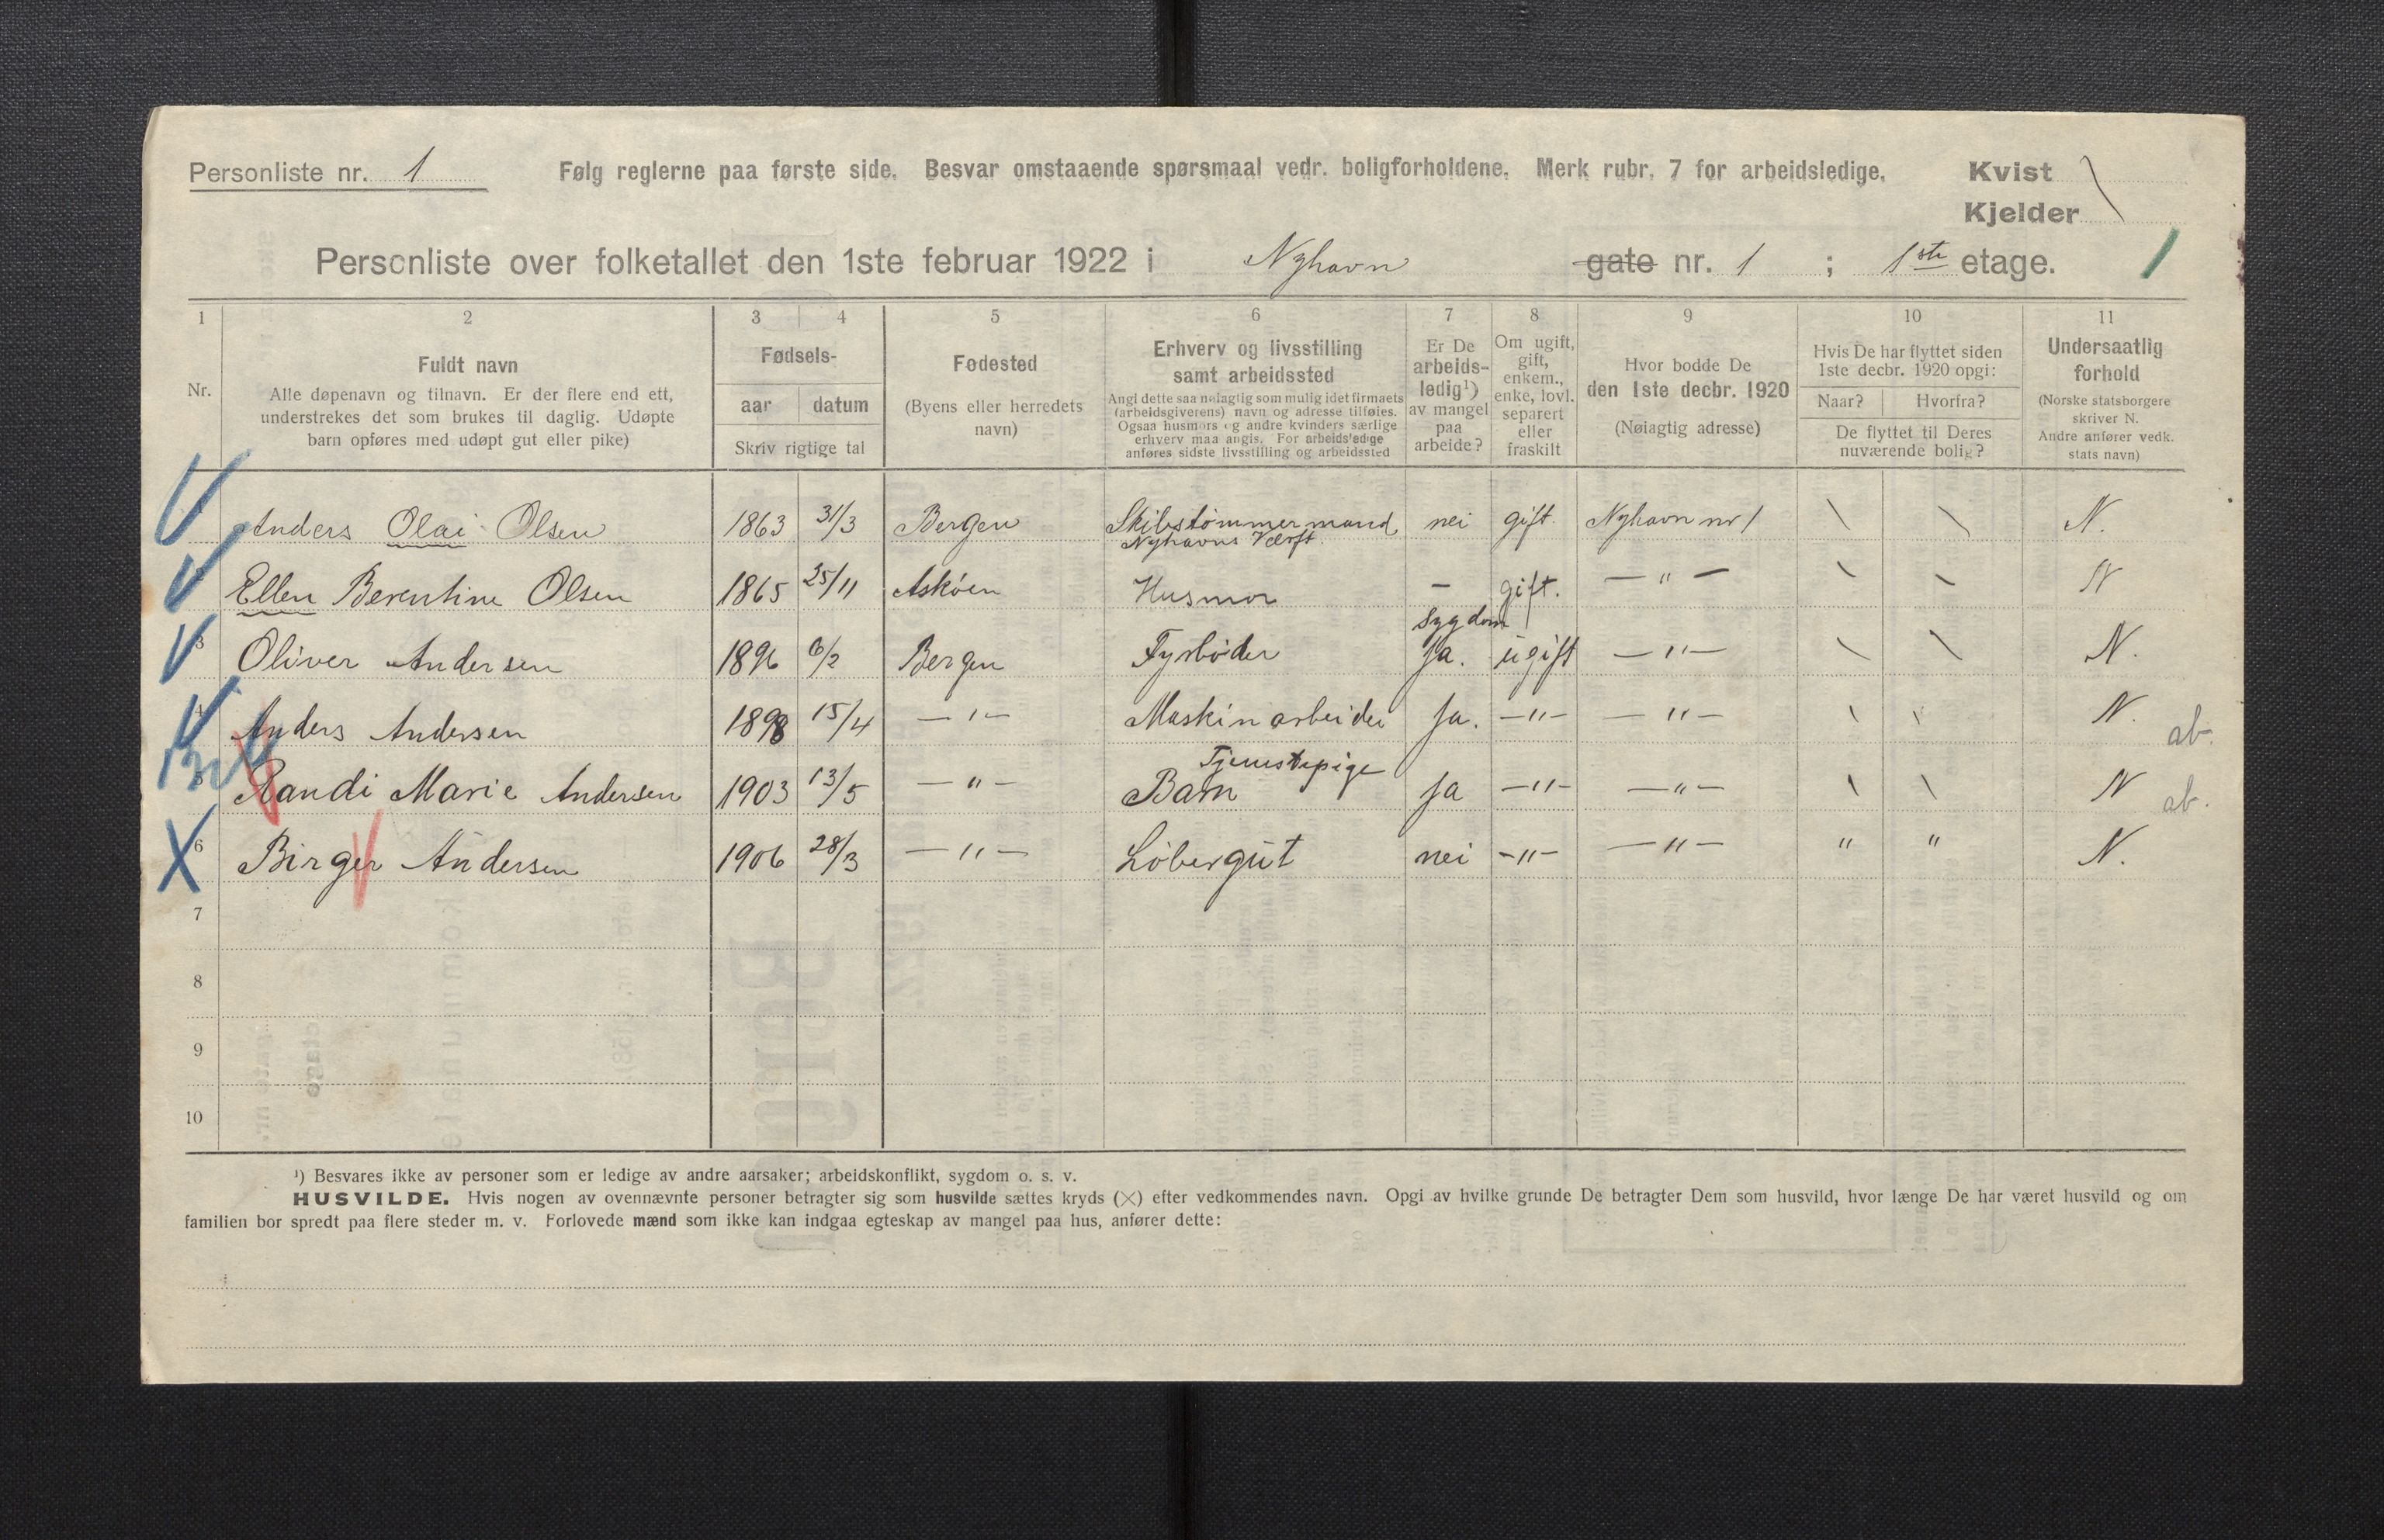 Personliste nr. 1 Følg reglerne paa første side. Besvar omstaaende spørsmaal vedr. boligforholdene. Merk rubr. 7 for arbeidsledige. Kvist
Kjelder
Personliste over folketallet den 1ste februar 1922 i Nyhavn gate nr. 1 ; 1ste etage. 1
1 2 3 4 5 6 7 8 9 10 11
Nr.
Fuldt navn
Alle døpenavn og tilnavn. Er der flere end ett,
understrekes det som brukes til daglig. Udøpte
barn opføres med udøpt gut eller pike)
Fødsels-
aar datum
Skriv rigtige tal
Fødested
(Byens eller herredets
navn)
Erhverv og livsstilling
samt arbeidssted
Angi dette saa nøiagtig som mulig idet firmaets
(arbeidsgiverens) navn og adresse tilføies.
Ogsaa husmors og andre kvinders særlige
erhverv maa angis. For arbeidsledige
anføres sidste livsstilling og arbeidssted
Er De
arbeids-
ledig¹)
av mangel
paa
arbeide?
Om ugift,
gift,
enkem.,
enke, lovl.
separert
eller
fraskilt
Hvor bodde De
den 1ste decbr. 1920
(Nøiagtig adresse)
Hvis De har flyttet siden
1ste decbr. 1920 opgi:
Naar? Hvorfra?
De flyttet til Deres
nuværende bolig?
Undersaatlig
forhold
(Norske statsborgere
skriver N.
Andre anfører vedk.
stats navn)
Anders Olai Olsen 1863 31/3 Bergen Skibstømmermand nei gift. Nyhavn nr 1 \ \ N.
Nyhavns Værft.
Ellen Berentine Olsen 1865 25/11 Askøen Husmor – gift. — " — \ \ N
sygdom
3 Oliver Andersen 1896 6/2 Bergen Fyrbøder Ja. ugift — " — \ \ N.
4 Anders Andersen 1898 15/4 — " — Maskinarbeider Ja. — " — — " — \ \ N. ab.
Tjenestepige
5 Randi Marie Andersen 1903 13/5 — " — Barn Ja — " — — " — \ \ N ab.
6 Birger Andersen 1906 28/3 — " — Løbergut nei — " — — " — " " N.
7
8
9
10
¹) Besvares ikke av personer som er ledige av andre aarsaker; arbeidskonflikt, sygdom o. s. v.
HUSVILDE. Hvis nogen av ovennævnte personer betragter sig som husvilde sættes kryds (×) efter vedkommendes navn. Opgi av hvilke grunde De betragter Dem som husvild, hvor længe De har været husvild og om
familien bor spredt paa flere steder m. v. Forlovede mænd som ikke kan indgaa egteskap av mangel paa hus, anfører dette: